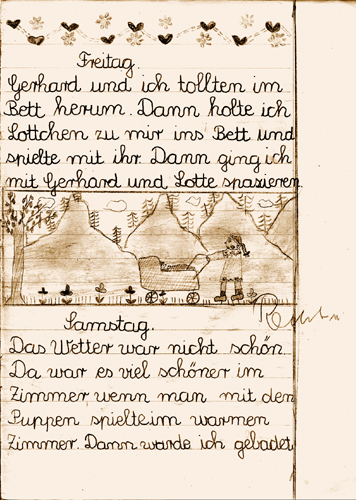 Freitag.
Gerhard und ich tollten im
Bett herum. Dann holte ich
Lottchen zu mir ins Bett und
spielte mit ihr. Dann ging ich
mit Gerhard und Lotte spazieren.
Samstag.
Das Wetter war nicht schön.
Da war es viel schöner im
Zimmer wenn man mit den
Puppen spielte im warmen
Zimmer. Dann wurde ich gebadet